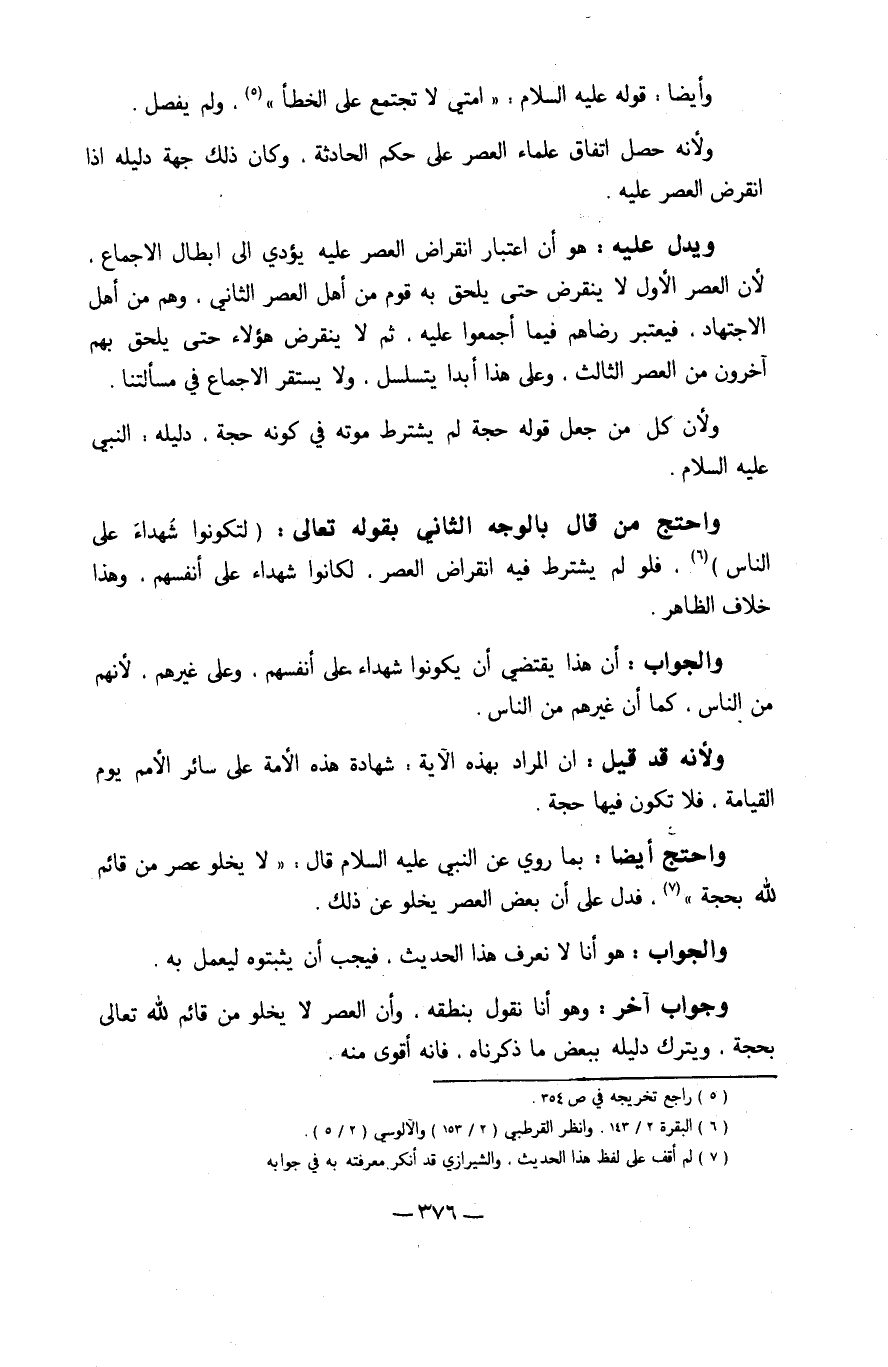 وأيضا : قوله عليه السلام : « امتي لا تجتمع على الخطأ »(٥) ، ولم يفصل .
ولأنه حصل اتفاق علماء العصر على حكم الحادثة ، وكان ذلك جهة دليله اذا
انقرض العصر عليه .
ويدل عليه : هو أن اعتبار انقراض العصر عليه يؤدي الى ابطال الاجماع ،
لأن العصر الأول لا ينقرض حتى يلحق به قوم من أهل العصر الثاني ، وهم من أهل
الاجتهاد ، فيعتبر رضاهم فيما أجمعوا عليه ، ثم لا ينقرض هؤلاء حتى يلحق بهم
آخرون من العصر الثالث ، وعلى هذا أبدا يتسلسل ، ولا يستقر الاجماع في مسألتنا .
ولأن كل من جعل قوله حجة لم يشترط موته في كونه حجة ، دليله : النبي
عليه السلام .
واحتج من قال بالوجه الثاني بقوله تعالى : ( لتكونوا شُهداءَ على
الناس )(٦) ، فلو لم يشترط فيه انقراض العصر ، لكانوا شهداء على أنفسهم ، وهذا
خلاف الظاهر .
والجواب : أن هذا يقتضي أن يكونوا شهداء على أنفسهم ، وعلى غيرهم ، لأنهم
من الناس ، كما أن غيرهم من الناس .
ولأنه قد قيل : ان المراد بهذه الآية : شهادة هذه الأمة على سائر الأمم يوم
القيامة ، فلا تكون فيها حجة .
واحتج أيضا : بما روي عن النبي عليه السلام قال : « لا يخلو عصر من قائم
لله بحجة »(٧) ، فدل على أن بعض العصر يخلو عن ذلك .
والجواب : هو أنا لا نعرف هذا الحديث ، فيجب أن يثبتوه ليعمل به .
وجواب آخر : وهو أنا نقول بنطقه ، وأن العصر لا يخلو من قائم لله تعالى
بحجة ، ويترك دليله ببعض ما ذكرناه ، فانه أقوى منه .
( ٥ ) راجع تخريجه في ص ٣٥٤ .
( ٦ ) البقرة ٢ / ١٤٣ ، وانظر القرطبي ( ٢ / ١٥٣ ) والآلوسي ( ٢ / ٥ ) .
( ٧ ) لم أقف على لفظ هذا الحديث ، والشيرازي قد أنكر معرفته به في جوابه
— ٣٧٦ —